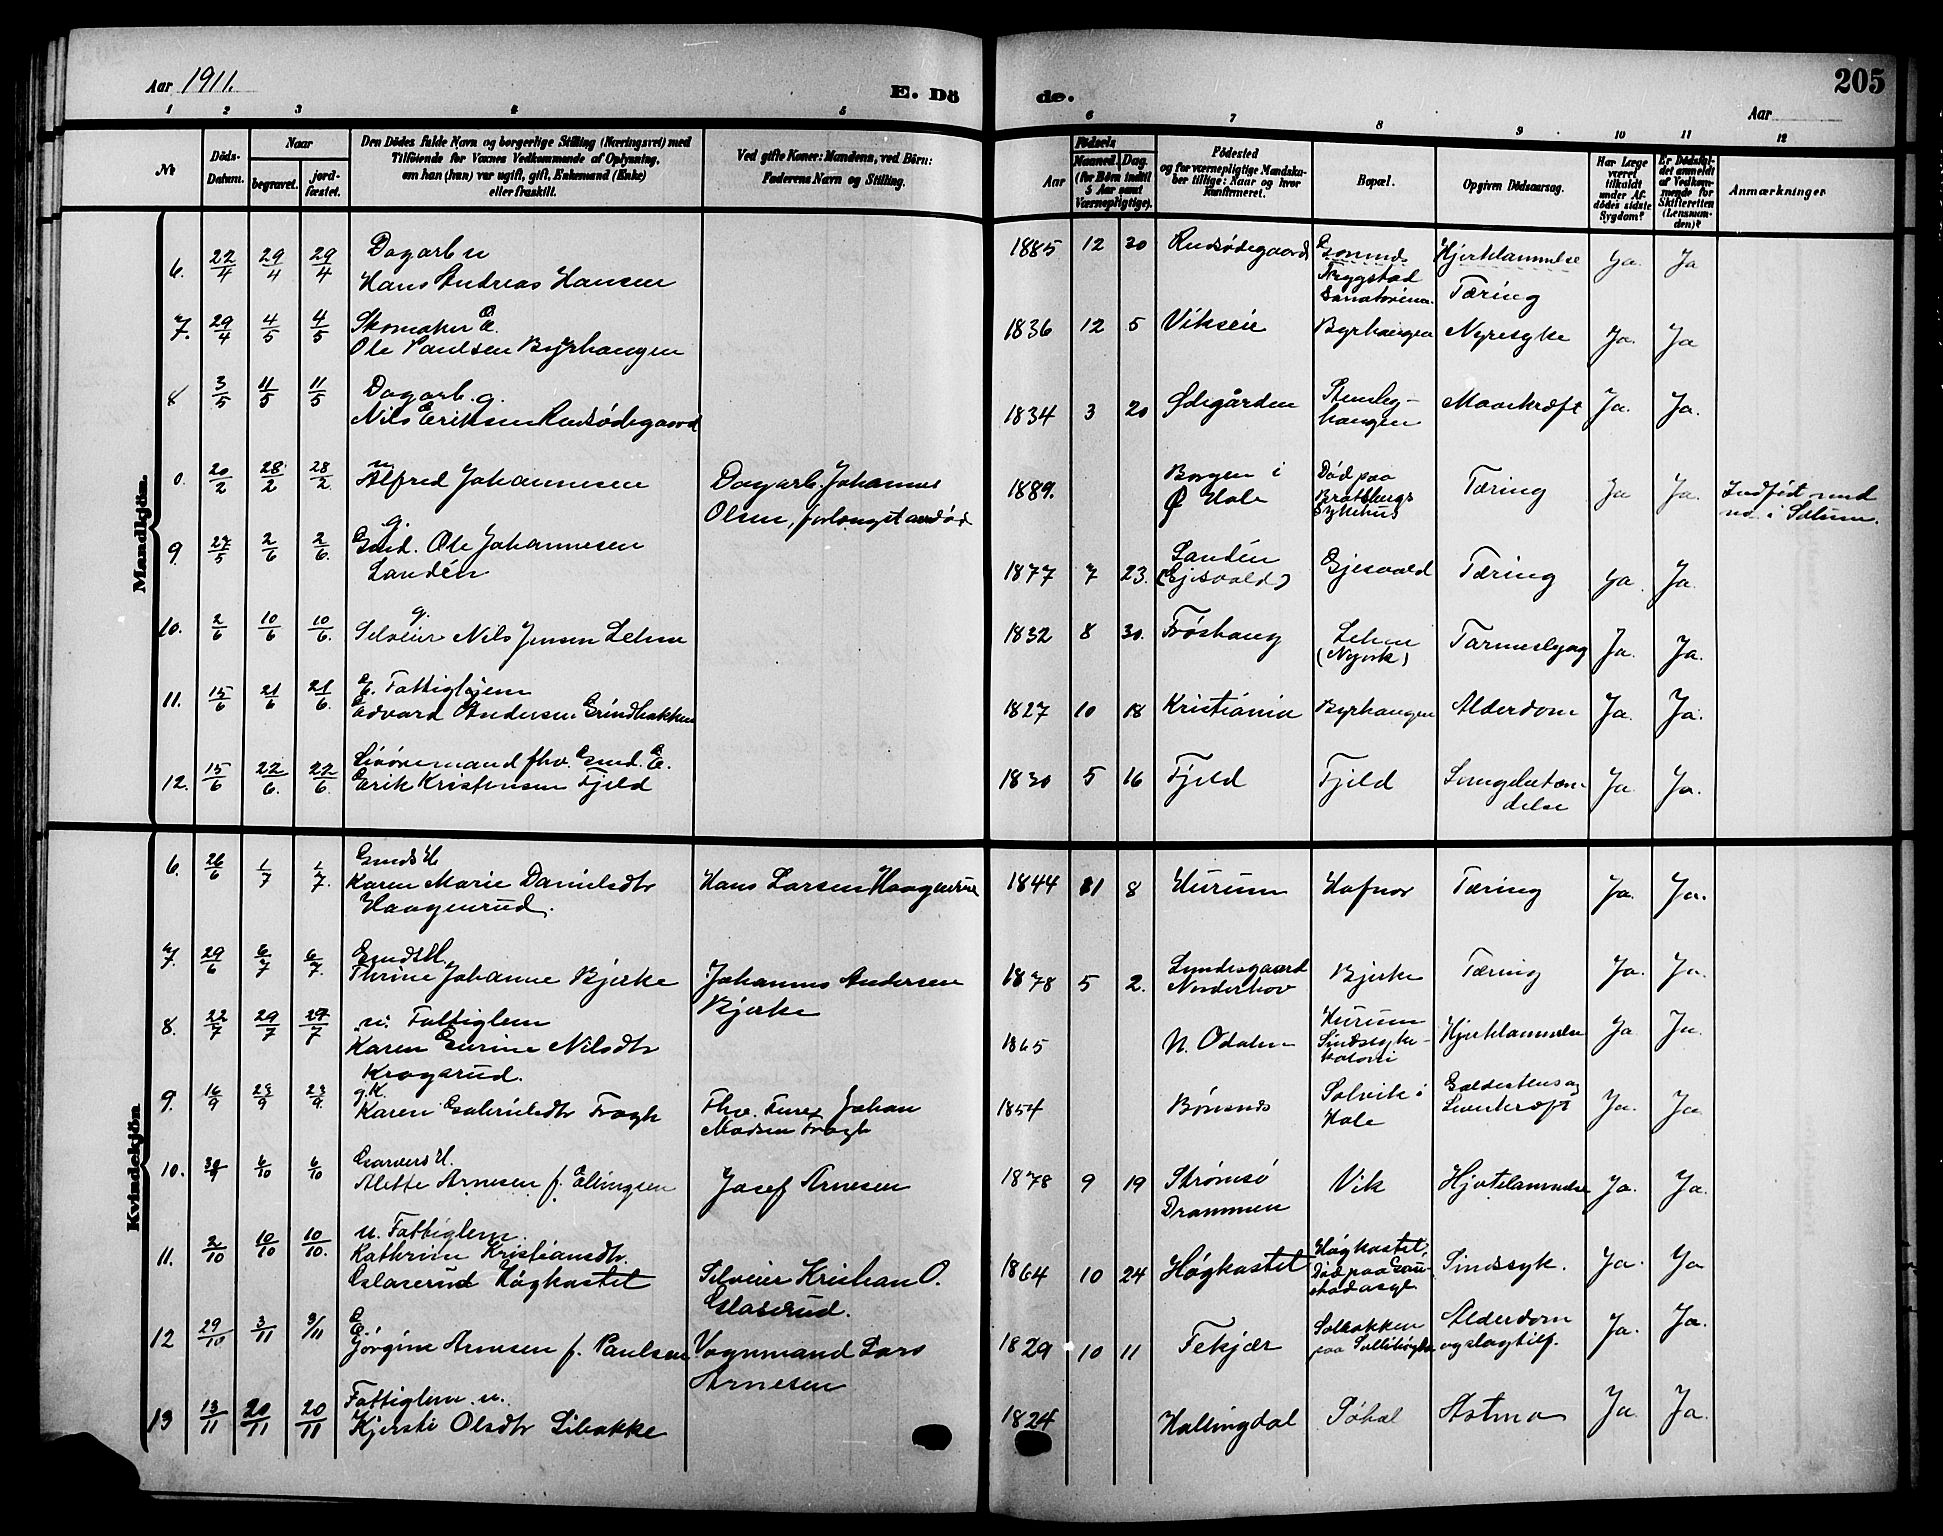 Aar 1911.
E. Dö
de.
Aar
205
1 2 3 4 5 6 7 8 9 10 11 12
No
Döds-Datum.
Naar
begravet.
jord-fæstet.
Den Dödes fulde Navn og borgerlige Stilling (Næringsvei) med
Tilföiende for Voxnes Vedkommende af Oplysning,
om han (hun) var ugift, gift, Enkemand (Enke)
eller fraskilt.
Ved gifte Koner: Mandens, ved Börn:
Faderens Navn og Stilling.
Födsels
Aar
Maaned. Dag.
(for Börn indtil
5 Aar samt
Værnepligtige).
Födested
og for værnepligtige Mandska-
ber tillige: Naar og hvor
Konfirmeret.
Bopæl.
Opgiven Dödsaarsag.
Har Læge
været
tilkaldt
under Af-
dödes sidste
Sygdom?
Er Dödsfal-
det anmeldt
af Vedkom-
mende for
Skifteretten
(Lensman-
den)?
Anmærkninger
Mandkjön.
6. 22/4 29/4 29/4 Dagarb u
Hans Andreas Hansen
1885 12 20 Rudsødegaard
Grønnd.
Trygstad
Sanatorium
Hjertelammelse
Tæring
Ja Ja
7. 29/4 4/5 4/5 Skomaker E.
Ole Paulsen Byrhaugen
1836 12 5 Vikseie Byrhaugen Nyresyke Ja. Ja
8 3/5 11/5 11/5 Dagarb. g.
Nils Eriksen Rudsødegaard
1834 3 20 Ødegården Stensleg-
haugen
Mavekræft Ja. Ja.
0. 20/2 28/2 28/2 u
Alfred Johannesen
Dagarb. Johannes
Olsen, forlængst avdød
1889.
Borgen i
Ø Hole
Død paa
Bratsbergs
Sykehus
Tæring Ja Ja.
Indført und
no. i Solum.
9 27/5 2/6 2/6. g.
Gmd. Ole Johannesen
Landén
1877 7 23. Landén
(Gjesvald)
Gjesvald Tæring Ja. Ja.
10. 2/6 10/6 10/6. g.
Selveier Nils Jensen Lehne
1832 8 30. Frøshaug Lehne
(Nyvik)
Tarmeslyng Ja. Ja.
11. 15/6 21/6 21/6. E. Fattiglem
Edvard Andersen Grindbakken
1827 10 18 Kristiania Byrhaugen Alderdom Ja. Ja.
12. 15/6 22/6. 22/6. Livøremand fhv. Gmd. E.
Erik Kristensen Fjeld
1830 5 16 Fjeld Fjeld Lungebetæn-
delse
Ja Ja.
Kvindekjön
6. 26/6 1/7 1/7. Gmds H
Karen Marie Danielsdtr
Haagenrud.
Hans Larsen Haagenrud
1844 11 8 Hurum Hafnor Tæring Ja. Ja.
7. 29/6 6/7 6/7. Gmds H.
Thrine Johanne Bjerke
Johannes Andersen
Bjerke
1878 5 2. Lundesgaard
Norderhov
Bjerke Tæring Ja. Ja.
8. 22/7 29/7 29/7 u. Fattiglem
Karen Gurine Nilsdtr
Kragsrud.
1865 N. Odalen
Hurum
Sindssyke-
koloni
Hjertelammelse Ja Ja.
9. 16/9 23/9 23/9. g. K.
Karen Gabrielsdtr Fragh
Fhv. Furer Johan
Madsen Fragh
1854 Bønsnæs
Solvik i
Hole
Galdestens og
Leverkræft
Ja. Ja
10. 30/9 6/10 6/10 Garvers H.
Alette Arnesen f. Ellingsen
Josef Arnesen
1878 9 19 Strømsø
Drammen
Vik Hjertelammelse Ja. Ja.
11. 2/10 10/10 10/10. u. Fattiglem.
Kathrine Kristiansdtr.
Glaserud Høgkastet
Selveier Kristian O.
Glaserud.
1864 10 24 Høgkastet
Høgkastet,
Død paa Gau-
stad asyl
Sindssyk. Ja. Ja
12 29/10 3/11 3/11 E.
Jørgine Arnesen f. Paulsen
Vognmand Lars
Arnesen
1829 10 11 Fekjær
Solbakken
paa Sollihøgda
Alderdom
og slagtilf.
Ja. Ja.
13 13/11 20/11 20/11 Fattiglem u.
Kjersti Olsdtr Libakke
1824 Hallingdal Søhol Astma Ja. Ja.